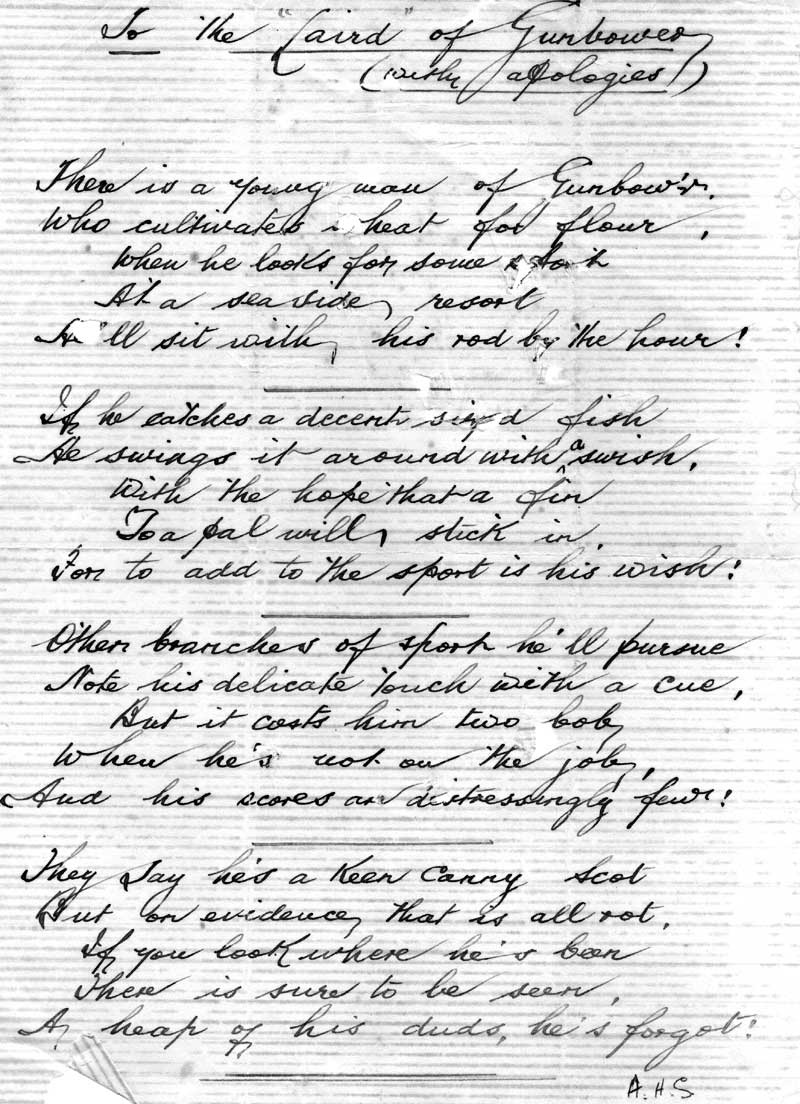 To the "Laird" of Gunbower
(with apologies)
There is a young man of Gunbow'r,
Who cultivates wheat for flour,
When he looks for some sport
At a seaside resort
He'll sit with his rod by the hour!
If he catches a decent sized fish
He swings it around with a swish,
With the hope that a fin
To a pal will stick in,
For to add to the sport is his wish!
Other branches of sport he'll pursue
Note his delicate touch with a cue,
But it costs him two bob
When he's not on the job,
And his scores are distressingly few!
They say he's a keen canny Scot
But on evidence, that is all rot,
If you look where he's been
There is sure to be seen,
A heap of his duds, he's forgot!
A.H.S